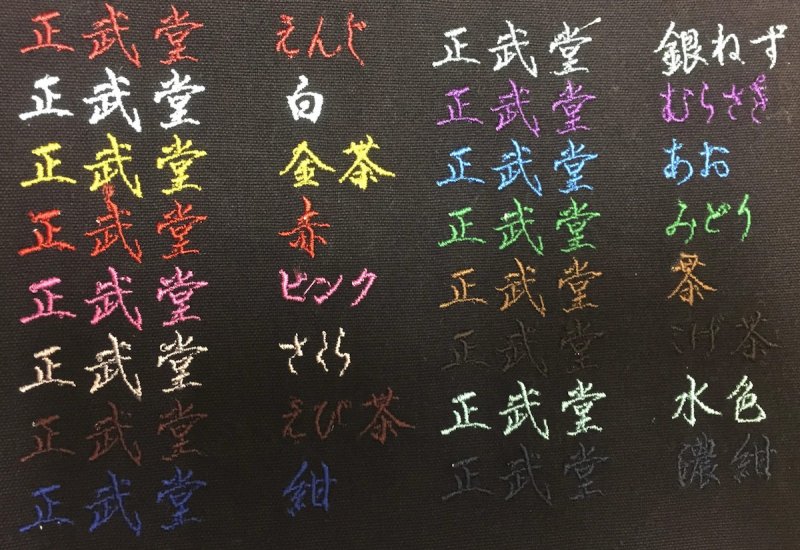 正武堂 えんじ
正武堂 白
正武堂 金茶
正武堂 赤
正武堂 ピンク
正武堂 さくら
正武堂 えび茶
正武堂 紺
正武堂 銀ねず
正武堂 むらさき
正武堂 あお
正武堂 みどり
正武堂 茶
正武堂 こげ茶
正武堂 水色
正武堂 濃紺